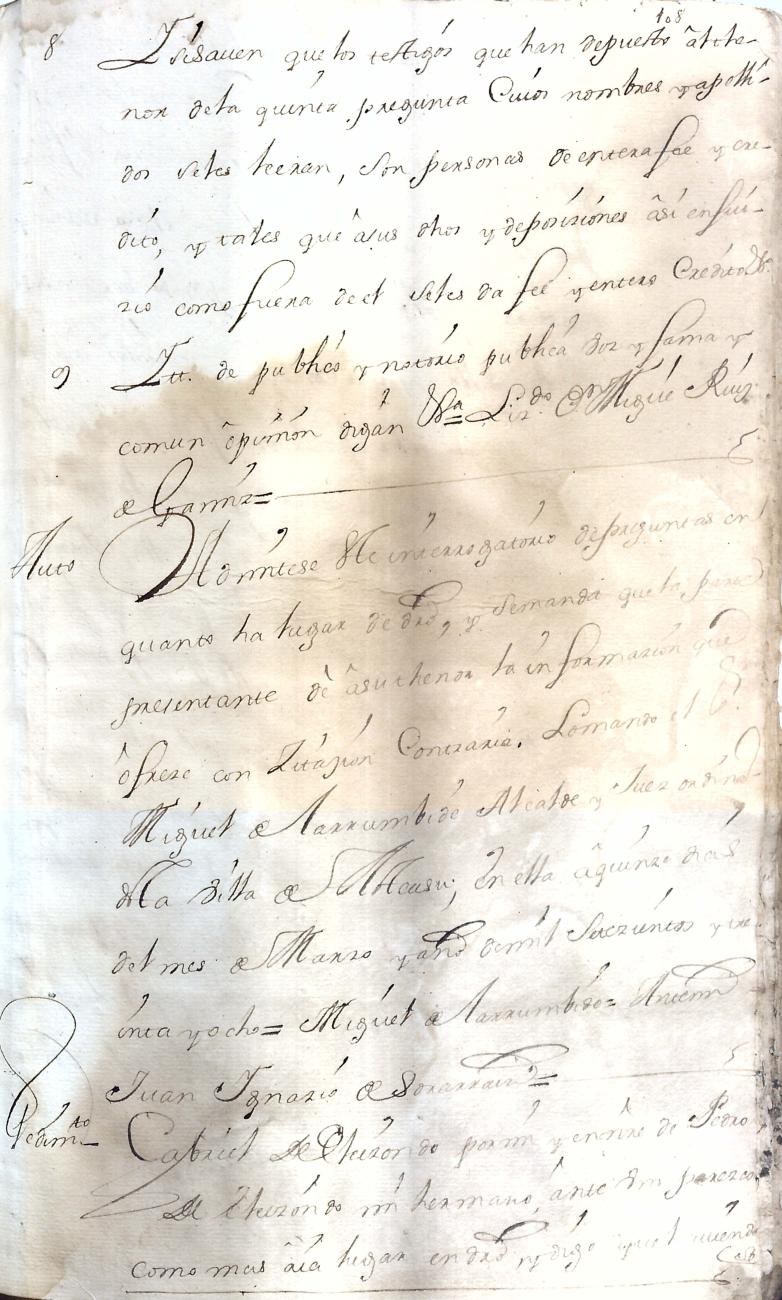 108
8 Y si saven que los testigos que han depuesto â el the-
nor dela quinta pregunta Cuios nombres y apelli-
dos seles leeran, son personas de entera feé y cre-
dito, y tales que â sus dhos y deposiziones âsi en jui-
zio como fuera de el seles da feé y entero Credito &a
9 Ytt. de publico y notorio publica voz y fama y
comun ôpinion digan &a = Lizdo Dn Miguel Ruiz
de Gamiz =
Auto Admitese este interrogatorio de preguntas en
quanto ha lugar de dro, y Semanda que la parte
presentante dê â su thenor la informazion que
ôfreze con Zitazion Contraria. Lo mando el Sr.
Miguel de Larrumbide Alcalde y Juez ordino
dela Villa de en ella â quinze dias
del mes de Marzo y año de mil Setezientos y tre-
inta y ocho = Miguel de Larrumbide = Antemi
Juan Ygnazio de Sorarrain =
Pedimto Gabriel de Elizondo por mi y en nre de Pedro
de Elizondo mi hermano, ânte Vm parezco
como mas âia lugar en dro, y digo que